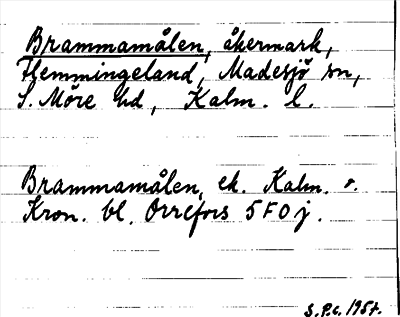 Brammamålen, åkermark,
Flemmingeland, Madesjö sn,
S. Möre hd, Kalm. l.
Brammamålen, ek. Kalm. o.
Kron. bl. Orrefors 5F0j.
S.P.C. 1957.